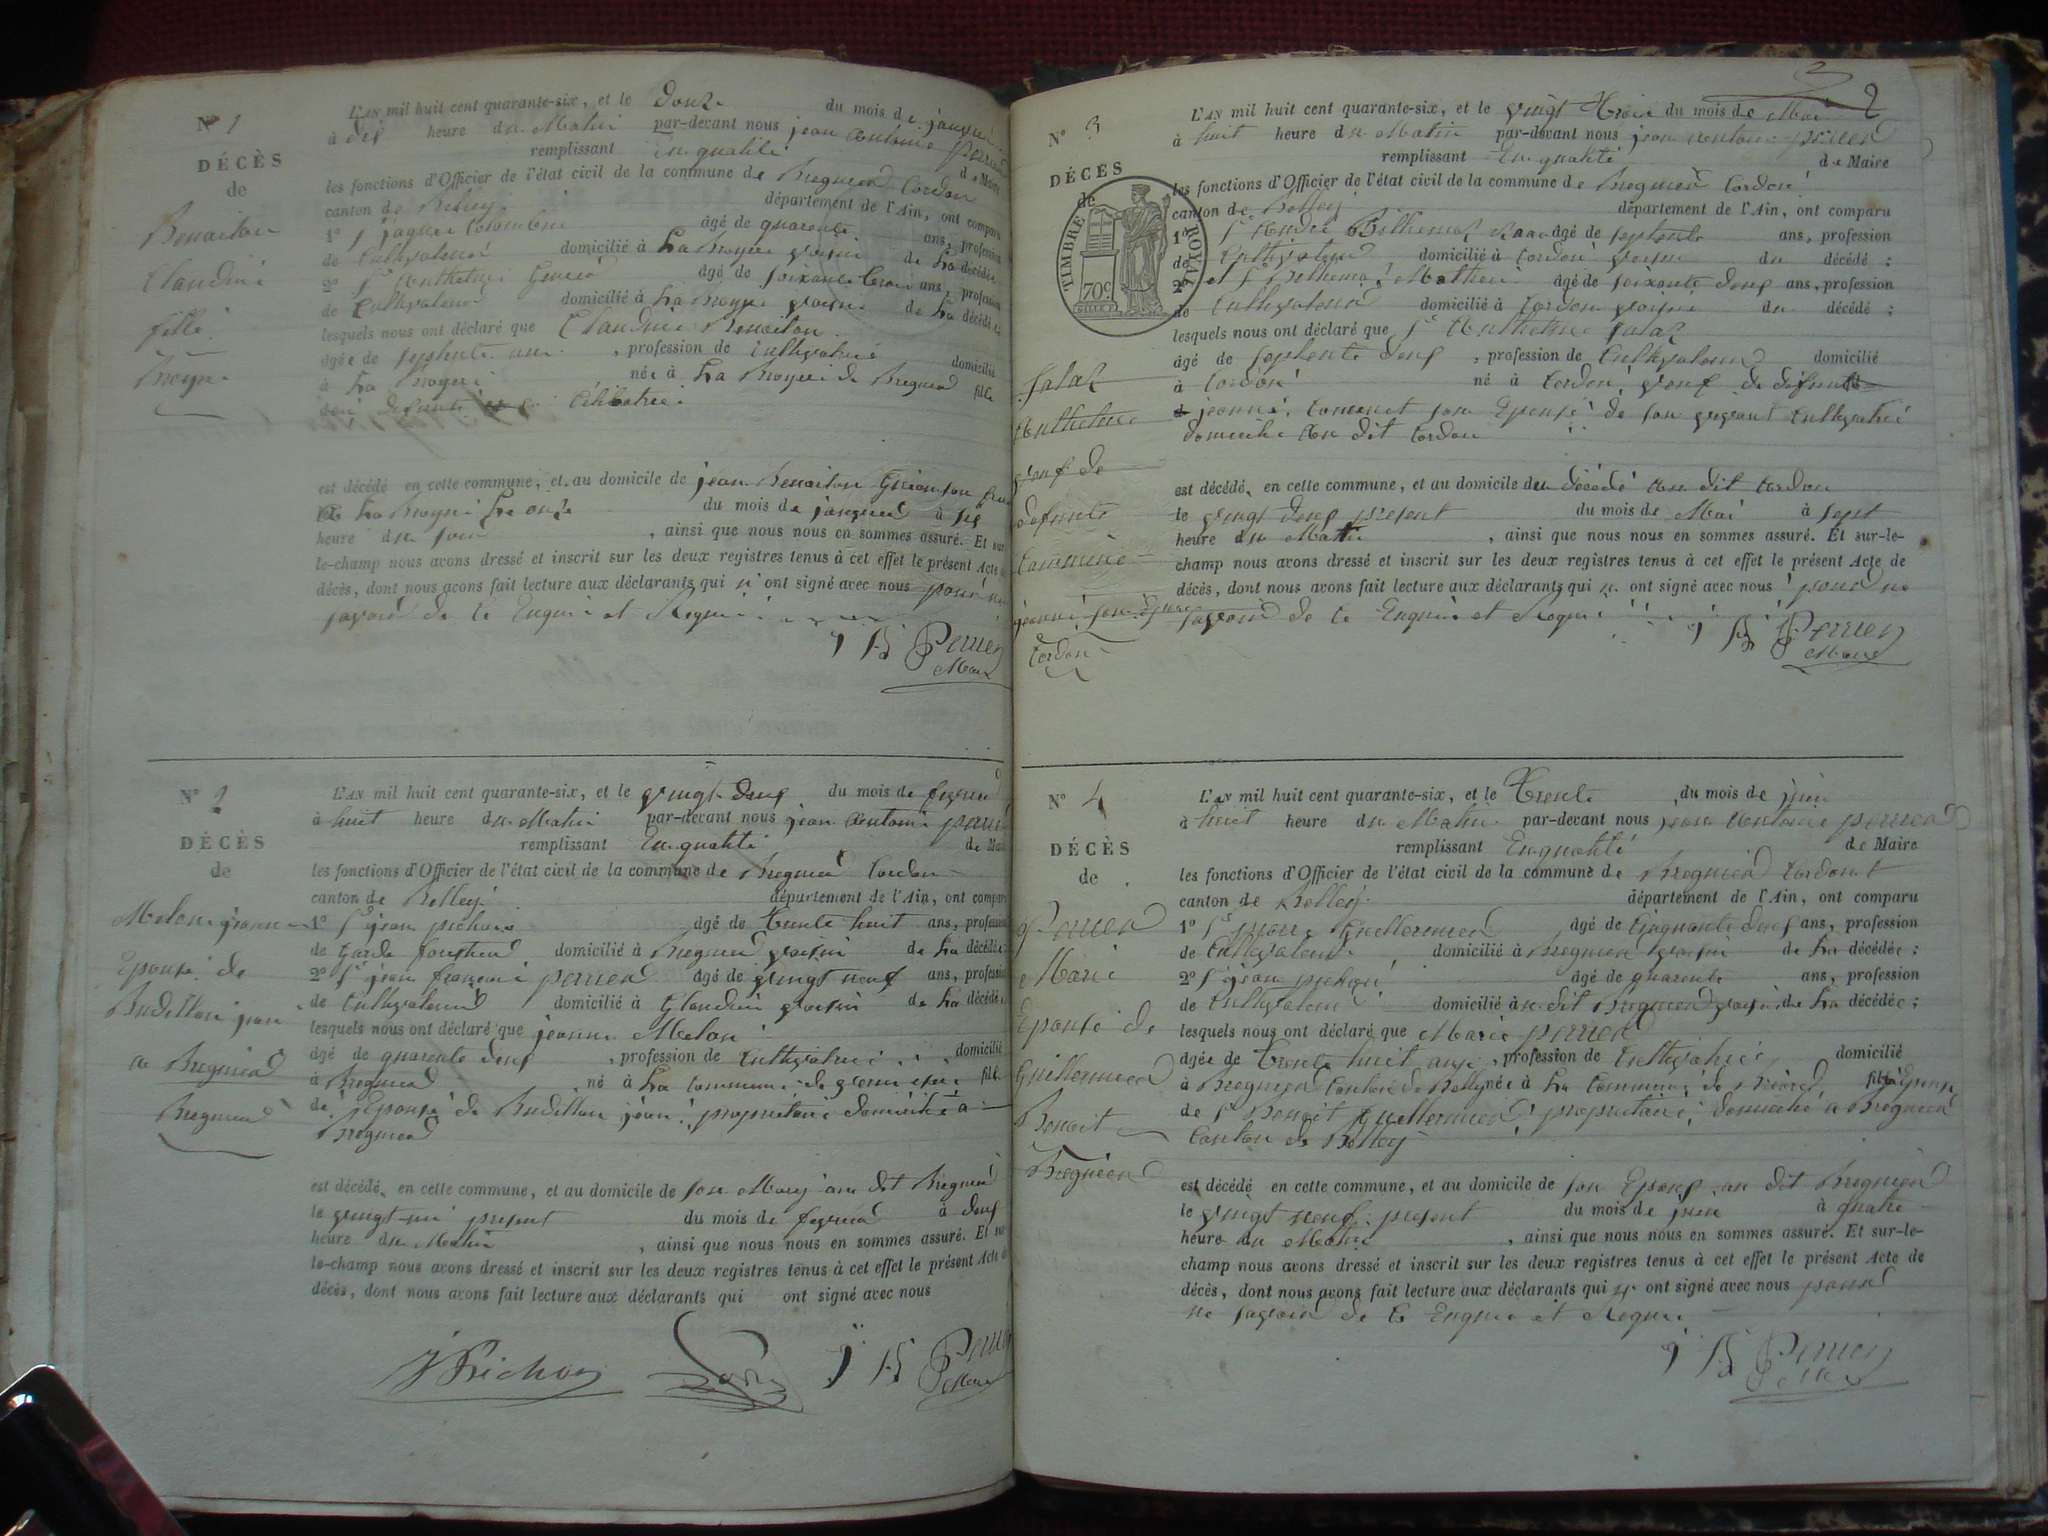 N° 1
DÉCÈS
de
Benoiton
Claudine
fille
L'AN mil huit cent quarante-six, et le douze du mois de janvier
à dix heure du Matin par-devant nous jean antoine perrier
remplissant en qualité de Maire
les fonctions d'Officier de l'état civil de la commune de Bregnier Cordon
canton de Belley département de l'Ain, ont comparu
1° Sr jaques Colombin âgé de quarente ans, profession
de Cultivateur domicilié à La Bruyer voisin de La décédée
2° Sr Anthelme âgé de soixante trois ans, profession
de Cultivateur domicilié à La Bruyer voisin de La décédée
lesquels nous ont déclaré que Claudine Benoiton
âgée de septente ans, profession de Cultivatrice domicilié
à La née à La de Bregnier fille
Célibatrice
est décédé en cette commune, et au domicile de jean Benoiton
La onze du mois de janvier à six
heure du soir, ainsi que nous nous en sommes assuré. Et sur
le-champ nous avons dressé et inscrit sur les deux registres tenus à cet effet le présent Acte de
décès, dont nous avons fait lecture aux déclarants qui n'ont signé avec nous pour ne
savoir de ce Enquis et Requi
Perrier
Maire
N° 2
DÉCÈS
de
Melon jeanne
Epouse de
Budillon jean
a Bregnier
Bregnier
L'AN mil huit cent quarante-six, et le vingt deux du mois de fevrier
à huit heure du Matin par-devant nous jean antoine perrier
remplissant En qualité de Maire
les fonctions d'Officier de l'état civil de la commune de Bregnier Cordon
canton de Belley département de l'Ain, ont comparu
1° Sr jean pichon âgé de trente huit ans, profession
de Garde forestier domicilié à Bregnier voisin de La décédée
2° Sr jean françois perrier âgé de vingt neuf ans, profession
de Cultivateur domicilié à Glandieu voisin de La décédée
lesquels nous ont déclaré que jeanne Melon
âgé de quarente deux, profession de Cultivatrice domicilié
à Bregnier né à La commune de fille
de Epouse de Budillon jean propriétaire domicilié a
Bregnier
est décédé en cette commune, et au domicile de son Mary au dit Bregnier
le vingt un présent du mois de fevrier à deux
heure du Matin, ainsi que nous nous en sommes assuré. Et sur
le-champ nous avons dressé et inscrit sur les deux registres tenus à cet effet le présent Acte de
décès, dont nous avons fait lecture aux déclarants qui ont signé avec nous
Pichon
Perrier
Maire
2
N° 3
DÉCÈS
de
TIMBRE ROYAL
70c
Anthelme
veuf de
defunte
jeanne son Epouse
Cordon
L'AN mil huit cent quarante-six, et le vingt trois du mois de Mai
à huit heure du Matin par-devant nous jean antoine perrier
remplissant En qualité de Maire
les fonctions d'Officier de l'état civil de la commune de Bregnier Cordon
canton de Belley département de l'Ain, ont comparu
1° Sr âgé de septente ans, profession
de Cultivateur domicilié à Cordon voisin du décédé ;
2° et Sr âgé de soixante deux ans, profession
de Cultivateur domicilié à Cordon voisin du décédé ;
lesquels nous ont déclaré que Sr Anthelme
âgé de septente deux, profession de Cultivateur domicilié
à Cordon né à Cordon, veuf de defunte
jeanne son Epouse de son vivant Cultivatrice
domicilié Au dit Cordon
est décédé, en cette commune, et au domicile du décédé Au dit Cordon
le vingt deux present du mois de Mai à sept
heure du Matin, ainsi que nous nous en sommes assuré. Et sur-le-
champ nous avons dressé et inscrit sur les deux registres tenus à cet effet le présent Acte de
décès, dont nous avons fait lecture aux déclarants qui n. ont signé avec nous pour ne
savoir de ce Enquis et Requi
Perrier
Maire
N° 4
DÉCÈS
de
Perrier
Marie
Epouse de
Guillermier
Benoit
Bregnier
L'AN mil huit cent quarante-six, et le trente du mois de juin
à huit heure du Matin par-devant nous jean Antoine perrier
remplissant En qualité de Maire
les fonctions d'Officier de l'état civil de la commune de Bregnier Cordont
canton de Belley département de l'Ain, ont comparu
1° Sr Guillermier âgé de Cinquante deux ans, profession
de Cultivateur domicilié à Bregnier voisin de La décédée ;
2° Sr jean pichon âgé de quarente ans, profession
de Cultivateur domicilié à u dit Bregnier voisin de La décédée ;
lesquels nous ont déclaré que Marie perrier
âgée de trente huit ans, profession de Cultivatrice domicilié
à Bregnier Canton de Belley née à La Commune de Epouse
de Sr Benoit Guillermier, propriétaire, domicilié a Bregnier
Canton de Belley
est décédé en cette commune, et au domicile de son Epoux au dit Bregnier
le vingt neuf present du mois de juin à quatre
heure du Matin, ainsi que nous nous en sommes assuré. Et sur-le-
champ nous avons dressé et inscrit sur les deux registres tenus à cet effet le présent Acte de
décès, dont nous avons fait lecture aux déclarants qui n' ont signé avec nous pour
ne savoir de ce Enquis et Requi
Perrier